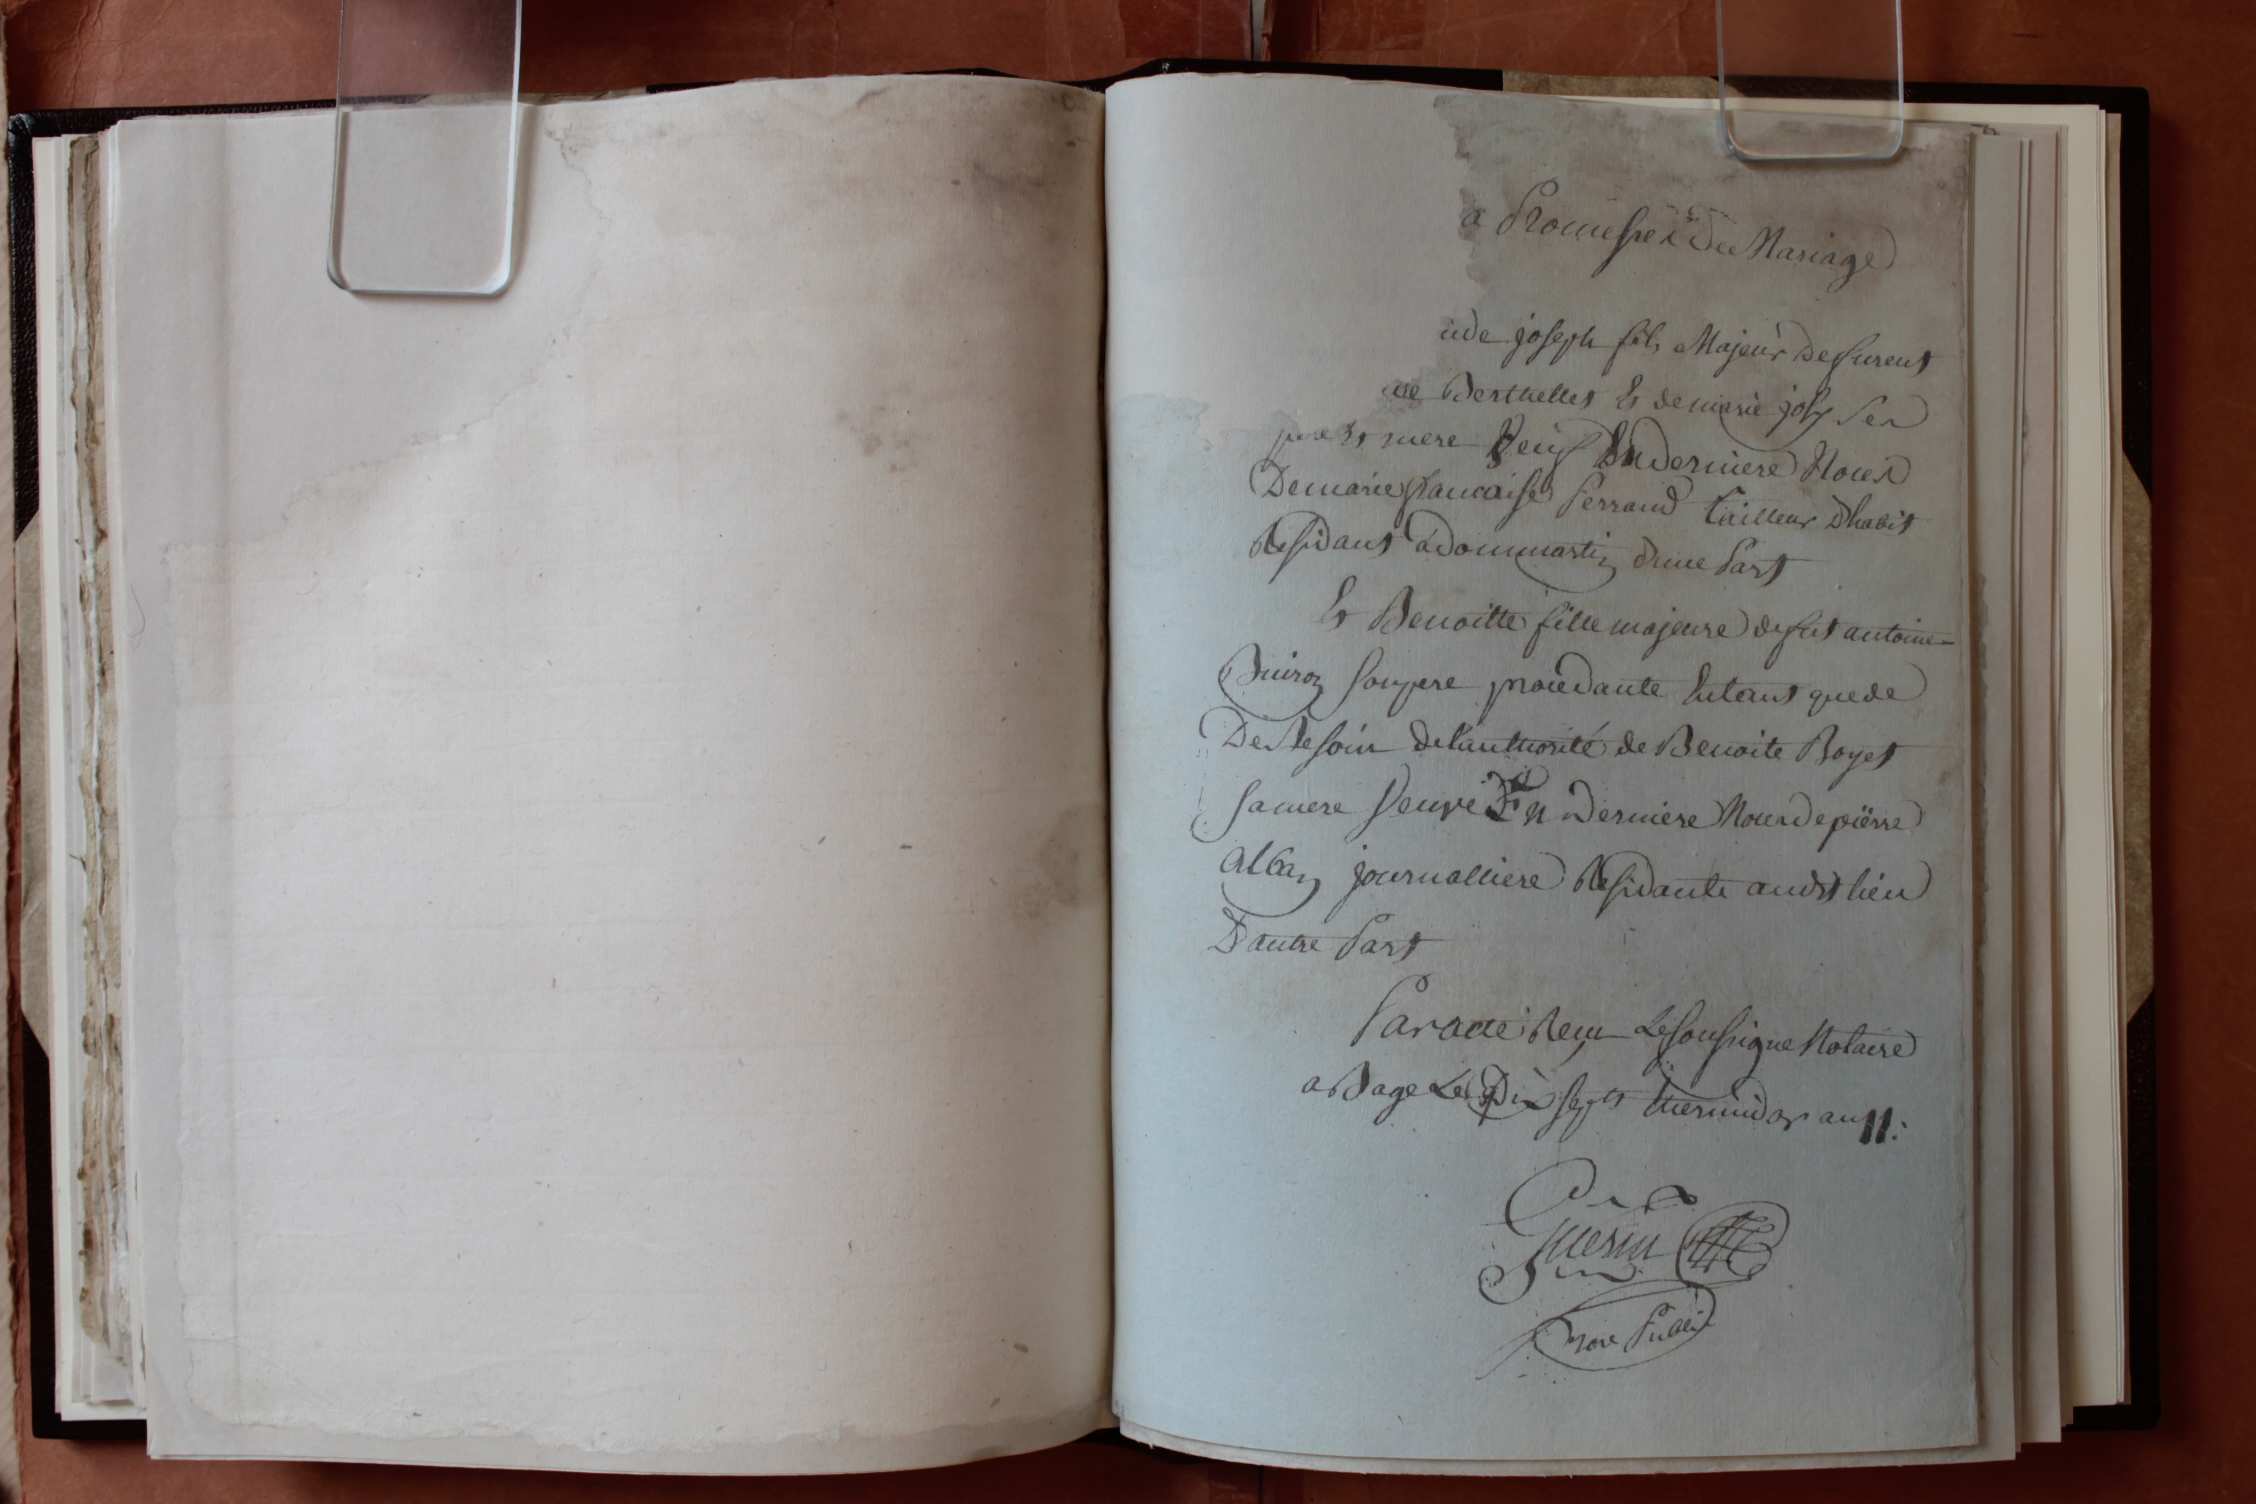 a Promesses De Mariage
ude joseph fils Majeur defurent
de Berthellet Et de marie joly Ses
pere Et mere Veuf En derniere Noces
De marie francaise Ferrand tailleur Dhabit
Residant a dommartin dune Part
Et Benoitte fille majeure de fut antoine
Buiron Son pere procedante Entant que de
De Besoin de lauthorité de Benoite Boyet
Sa mere Veuve En Derniere Noces de piërre
Alban journalliere Residante audit lieu
Dautre Part
Par acte Recu Le Soussigne Notaire
a Bage Le Dix Sept thermidor an 11:
Guerin
nore Public